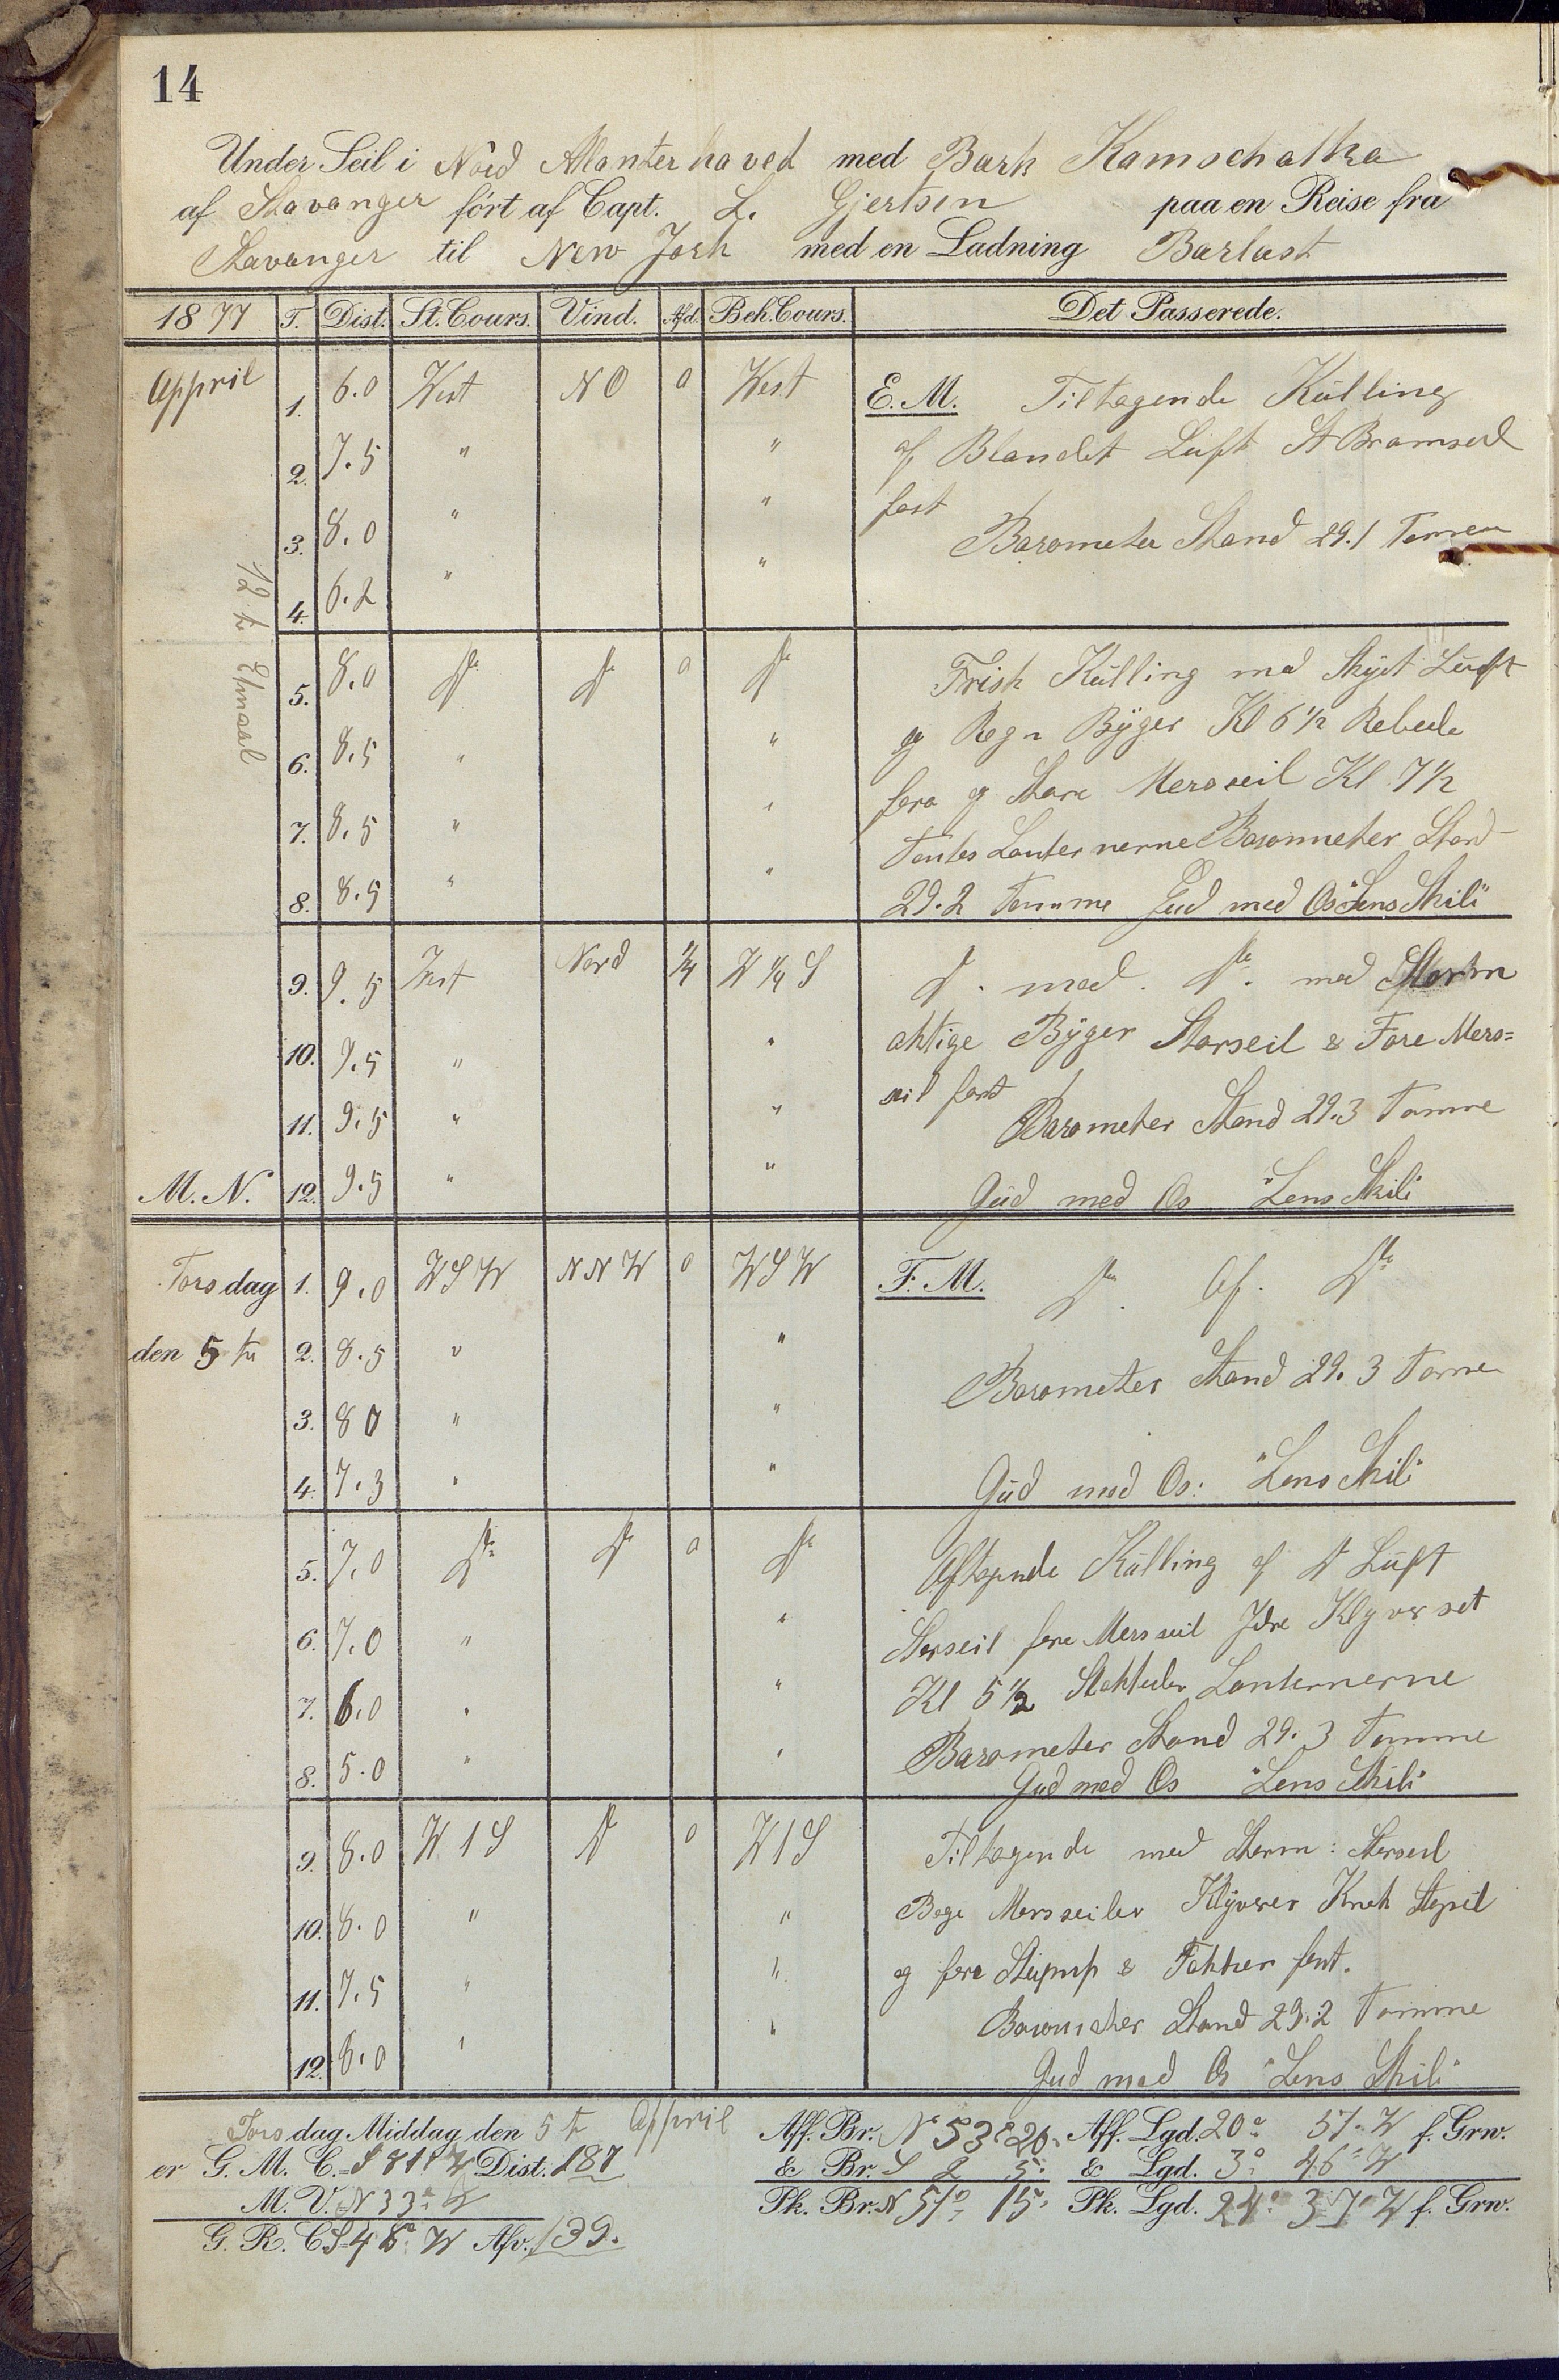 14
Under Seil i Nord Atlanterhaved med Bark Kamschatka
af Stavanger ført af Capt. L. Gjertsen paa en Reise fra
Stavanger til New York med en Ladning Barlast
1877 T. Dist. St. Cours. Vind. Afd. Beh. Cours. Det Passerede.
Appril 1. 6.0 West NO 0 West E.M. Tiltagende Kulling
2. 7.5 " " af Blandet Luft St Bramseil
3. 8.0 " " fast
Barometer Stand 29.1 Tomm
4. 6.2 " "
12te Etmaal
5. 8.0 Do Do 0 Do Frisk Kulling med Skyet Luft
6. 8.5 " " og Regn Byger Kl 6 1/2 Rebede
7. 8.5 " " fore og Store Merseil Kl 7 1/2
Tentes Lanternerne Barometer Stand
8. 8.5 " " 29.2 Tomme Gud med Os "Lens Skib"
9. 9.5 West Nord 1/4 W 1/4 S Do. med Do. med Storm
10. 9.5 " " aktige Byger Storseil & Fore Mers=
11. 9.5 " " seil fast
Barometer Stand 29.3 Tomme
M. N. 12. 9.5 " " Gud med Os "Lens Skib"
Torsdag 1. 9.0 WSW NNW 0 WSW F.M. Do. Af. Do
den 5te 2. 8.5 " " Barometer Stand 29.3 Tomme
3. 8.0 " "
4. 7.3 " " Gud med Os: "Lens Skib"
5. 7.0 Do Do 0 Do Aftagende Kulling af Do Luft
6. 7.0 " " Storseil fore Mersseil Klyver set
7. 6.0 " " Kl 5 1/2 Lanternerne
Barometer Stand 29.3 Tomme
8. 5.0 " " Gud med Os "Lens Skib"
9. 8.0 W 1 S Do 0 W 1 S Tiltagende med Storm: Storseil
10. 8.0 " " Bege Mersseiler Klyver
11. 7.5 " " og fore & Fokken fast.
Barometer Stand 29.2 Tomme
12. 6.0 " " Gud med Os "Lens Skib"
Torsdag Middag den 5te Appril Aff. Br. N 53° 20' Aff. Lgd. 20° 51' W f. Grw.
er G. M. C. = S 81° W Dist. 187 & Br. S 2 5' & Lgd. 3° 46' W
M. V. N 33° W Pk. Br. N 51° 15' Pk. Lgd. 24° 37' W f. Grw.
G. R. C. S 48° W Afv. 139.